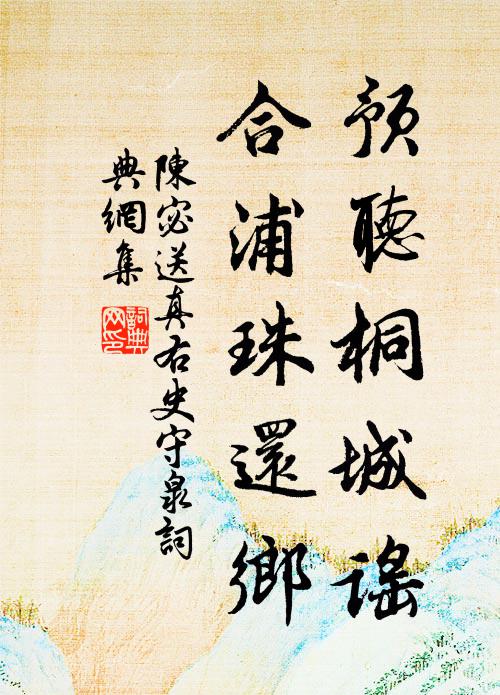 預聽桐城謠
合浦珠還鄉
陳宓送真右史守泉詞
典網集
詞典
网印